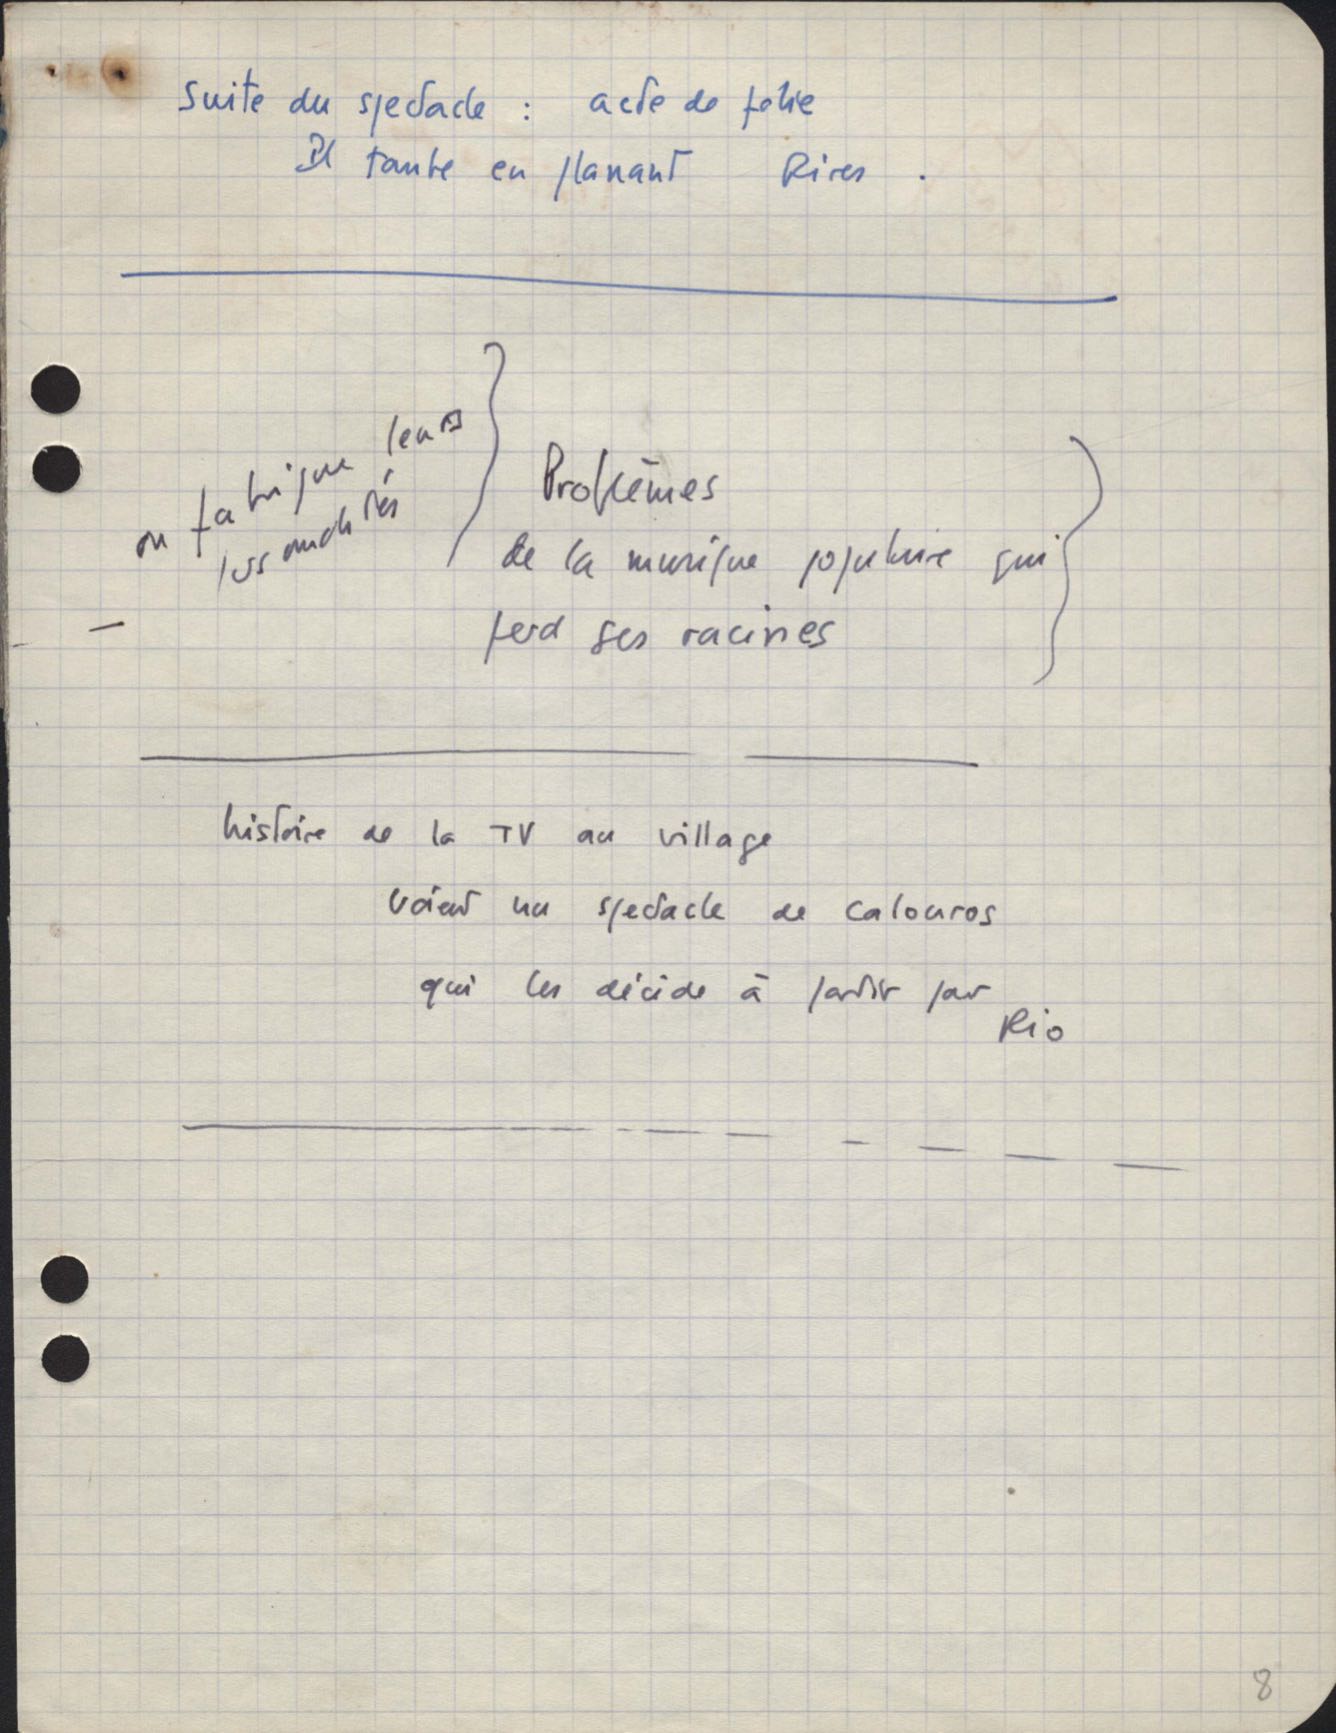 Suite du spectacle : acte de folie
Il tombe en planant Rires .
on fabrique leurs
personnalités
Problèmes
de la musique populaire qui
perd ses racines
histoire de la TV au village
voient un spectacle de calouros
qui les décide à partir pour
Rio
8